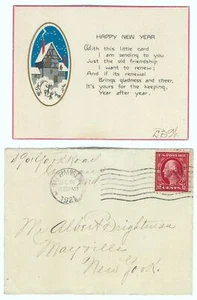 HAPPY NEW YEAR
With this little card
I am sending to you
Just the old friendship
I want to renew;
And if its renewal
Brings gladness and cheer,
It's yours for the keeping
Year after year.
Road
1921
U.S. POSTAGE
2 CENTS 2
Albert Brightman
Mayville
New York.